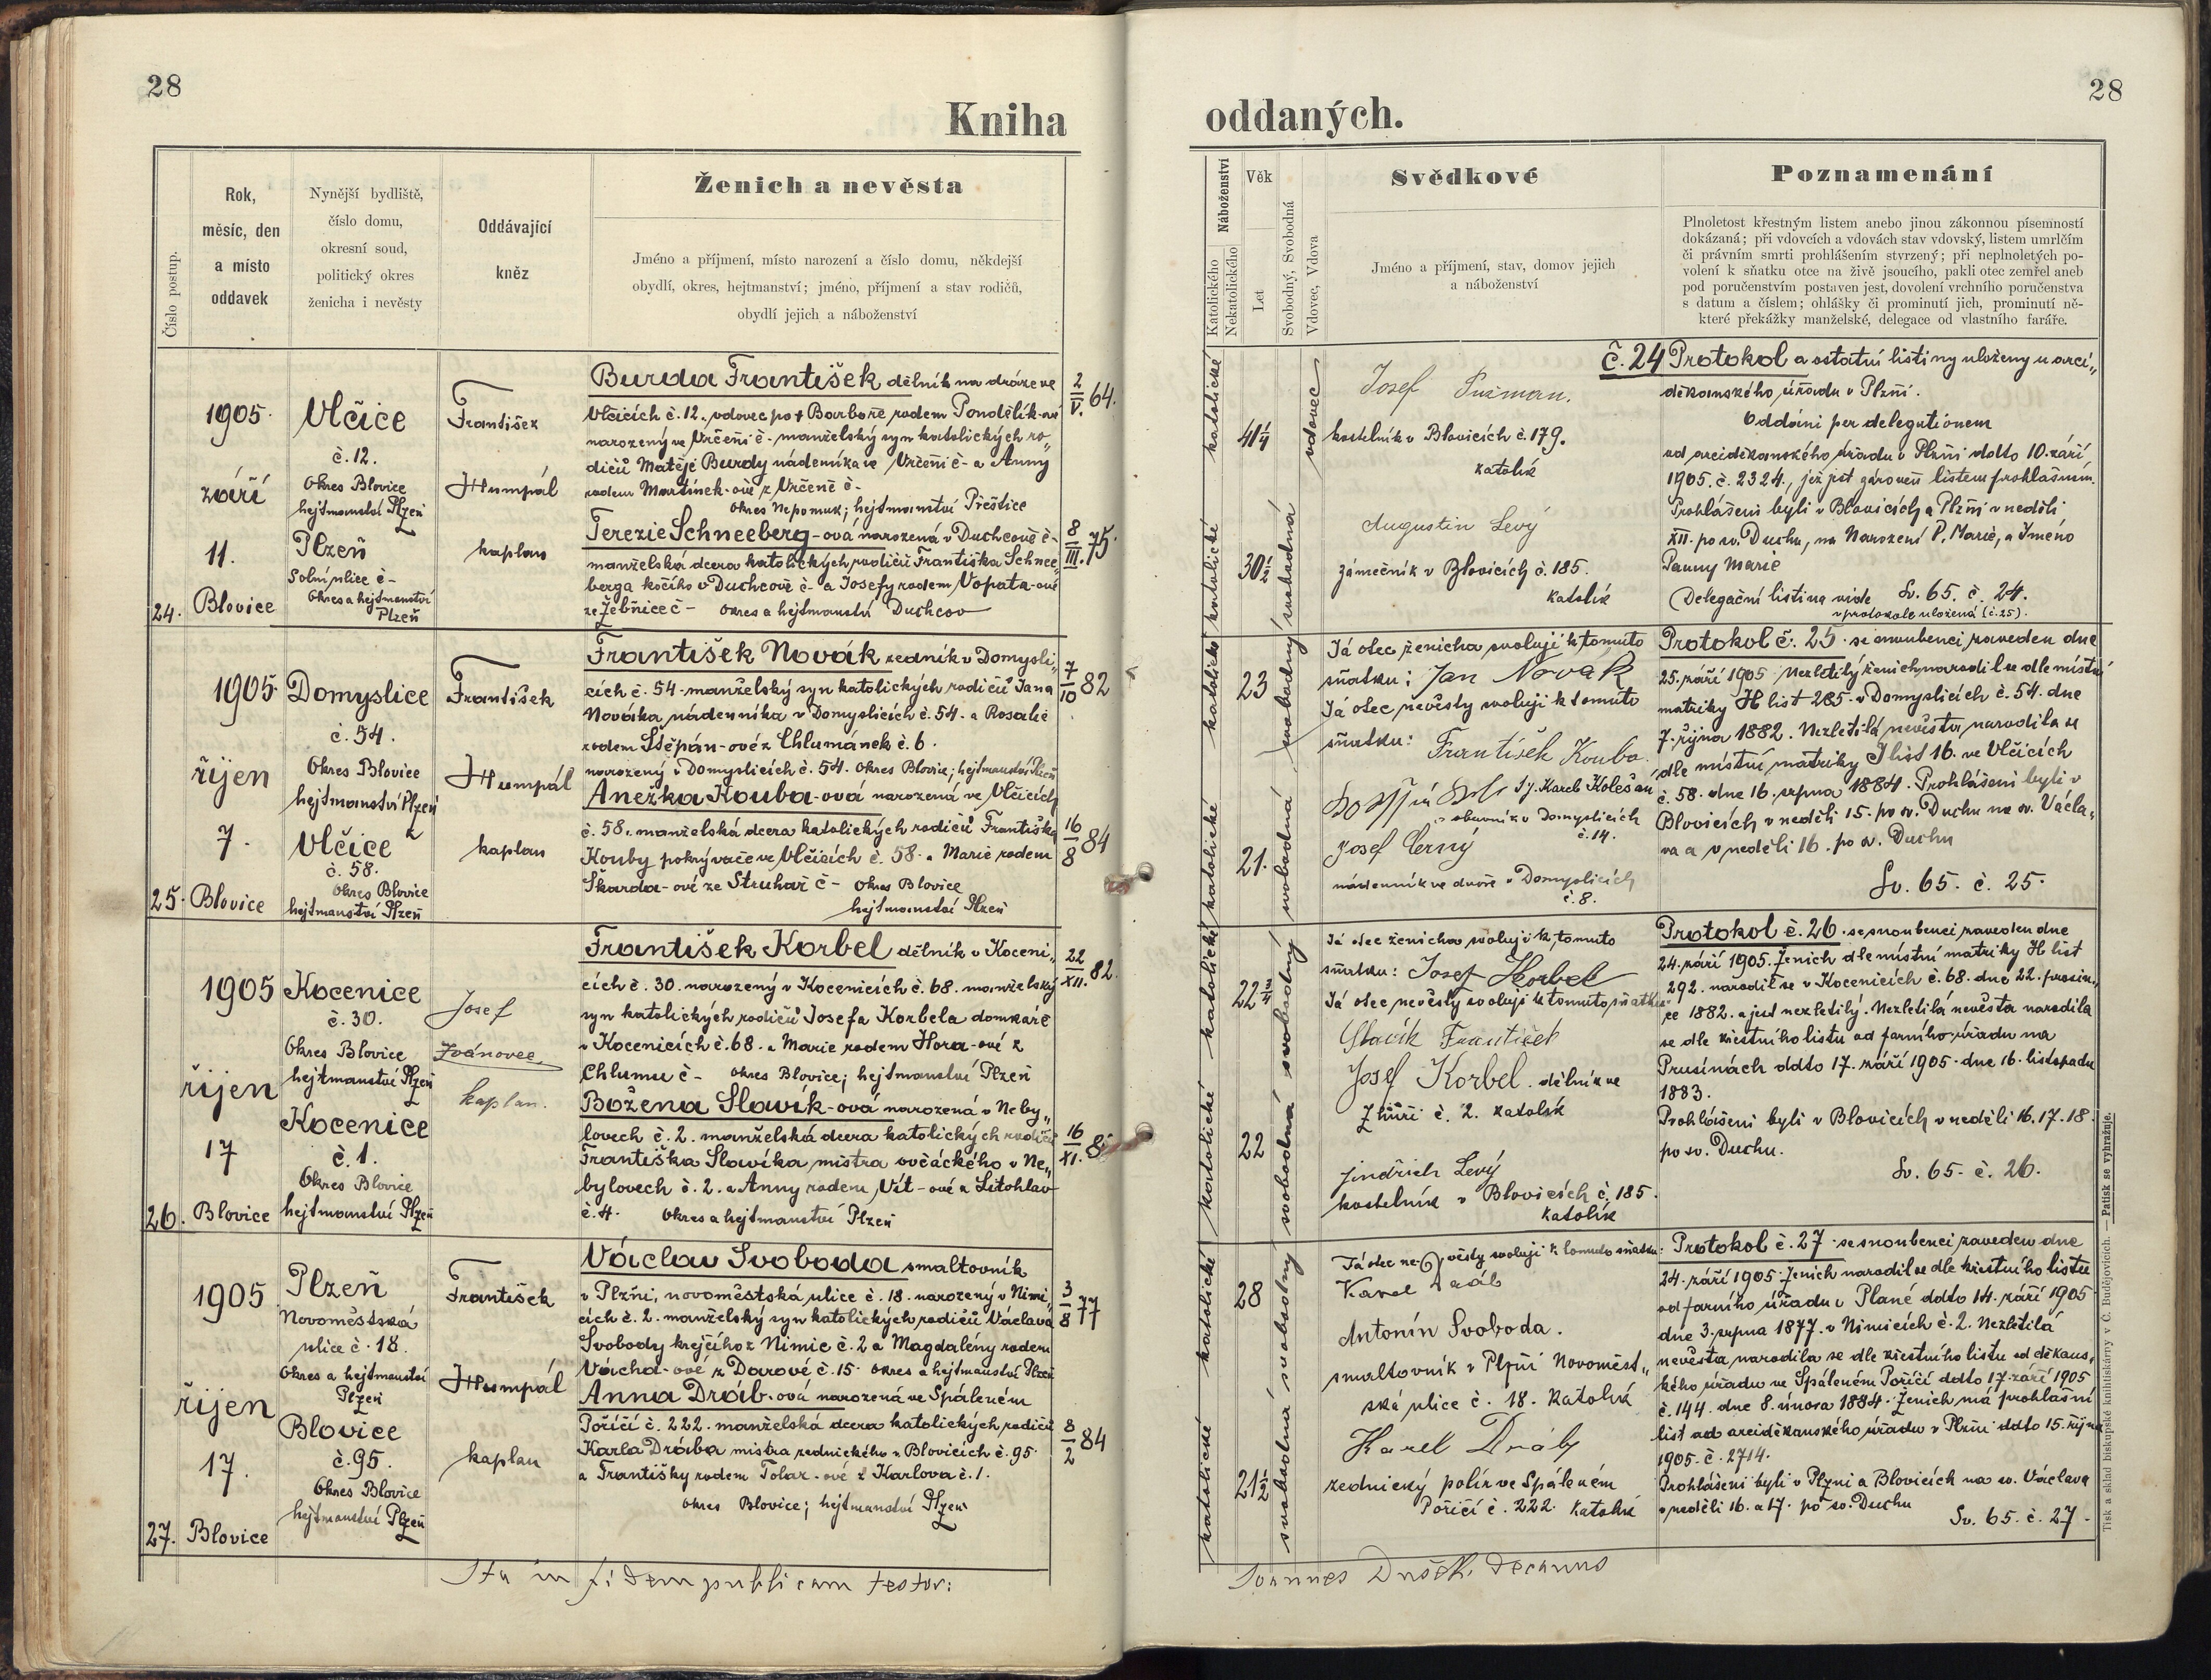 28
Kniha
Číslo postup.
Rok,
měsíc, den
a místo
oddavek
Nynější bydliště,
číslo domu,
okresní soud,
politický okres
ženicha i nevěsty
Oddávající
kněz
Ženich a nevěsta
Jméno a příjmení, místo narození a číslo domu, někdejší
obydlí, okres, hejtmanství; jméno, příjmení a stav rodičů,
obydlí jejich a náboženství
24.
1905.
září
11.
Blovice
Vlčice
č. 12.
Okres Blovice
hejtmanství Plzeň
Plzeň
Solní ulice č -
Okres a hejtmanství
Plzeň
František
Humpál
kaplan
Burda František dělník na dráze ve
Vlčicích č. 12. vdovec po † Barboře rodem Pondělík-ové
narozený ve Vrčeni č - manželský syn katolických ro„
dičů Matěje Burdy nádeníka ve Vrčeni č - a Anny
rodem Martínek-ové z Vrčeně č -
Okres Nepomuk; hejtmanství Přeštice
2/V. 64.
Terezie Schneeberg-ová narozená v Duchcově č -
manželská dcera katolických rodičů Františka Schnee„
berga kočího v Duchcově č - a Josefy rodem Vopata-ové
ze Žebnice č - Okres a hejtmanství Duchcov
8/III. 75.
25.
1905.
říjen
7.
Blovice
Domyslice
č. 54.
Okres Blovice
hejtmanství Plzeň
Vlčice
č. 58.
Okres Blovice
hejtmanství Plzeň
František
Humpál
kaplan
František Novák zedník v Domysli„
cích č. 54. manželský syn katolických rodičů Jana
Nováka nádenníka v Domyslicích č. 54. a Rosalie
rodem Štěpán-ové z Chlumánek č. 6.
narozený v Domyslicích č. 54. Okres Blovice; hejtmanství Plzeň
7/10 82
Anežka Kouba-ová narozená ve Vlčicích
č. 58. manželská dcera katolických rodičů Františka
Kouby pokrývače ve Vlčicích č. 58. a Marie rodem
Škarda-ové ze Struhař č - Okres Blovice
hejtmanství Plzeň
16/8 84
26.
1905
říjen
17
Blovice
Kocenice
č. 30.
Okres Blovice
hejtmanství Plzeň
Kocenice
č. 1.
Okres Blovice
hejtmanství Plzeň
Josef
Ivánovec
kaplan.
František Korbel dělník v Koceni„
cích č. 30. narozený v Kocenicích č. 68. manželský
syn katolických rodičů Josefa Korbela domkaře
v Kocenicích č. 68. a Marie rodem Hora-ové z
Chlumu č - Okres Blovice; hejtmanství Plzeň
22/XII. 82.
Božena Slavík-ová narozená v Neby„
lovech č. 2. manželská dcera katolických rodičů
Františka Slavíka mistra ovčáckého v Ne„
bylovech č. 2. a Anny rodem Vít-ové z Litohlav
č. 4. Okres a hejtmanství Plzeň
16/XI.
27.
1905
říjen
17.
Blovice
Plzeň
Novoměstská
ulice č. 18.
Okres a hejtmanství
Plzeň
Blovice
č. 95.
Okres Blovice
hejtmanství Plzeň
František
Humpál
kaplan
Václav Svoboda smaltovník
v Plzni, novoměstská ulice č. 18. narozený v Nimi„
cích č. 2. manželský syn katolických rodičů Václava
Svobody krejčího z Nimic č. 2 a Magdalény rodem
Vácha-ové z Darové č. 15. Okres a hejtmanství Plzeň
3/8 77
Anna Dráb-ová narozená ve Spáleném
Poříčí č. 222. manželská dcera katolických rodičů
Karla Drába mistra zednického v Blovicích č. 95.
a Františky rodem Tolar-ové z Karlova č. 1.
Okres Blovice; hejtmanství Plzeň
8/2 84
Ita in fidem publicam testor:
28
oddaných.
Náboženství
Katolického
Nekatolického
Věk
Let
Svobodný, Svobodná
Vdovec, Vdova
Svědkové
Jméno a příjmení, stav, domov jejich
a náboženství
Poznamenání
Plnoletost křestným listem anebo jinou zákonnou písemností
dokázaná; při vdovcích a vdovách stav vdovský, listem umrlčím
či právním smrti prohlášením stvrzený; při neplnoletých po-
volení k sňatku otce na živě jsoucího, pakli otec zemřel aneb
pod poručenstvím postaven jest, dovolení vrchního poručenstva
s datum a číslem; ohlášky či prominutí jich, prominutí ně-
které překážky manželské, delegace od vlastního faráře.
katolické
41¼
vdovec
katolické
30½
svobodná
Josef
kostelník v Blovicích č. 179.
katolík
Augustin Levý
zámečník v Blovicích č. 185.
katolík
č. 24 Protokol a ostatní listiny uloženy u arci„
děkanského úřadu v Plzni.
Oddáni per delegationem
od arciděkanského úřadu v Plzni ddto 10. září
1905. č. 2324., jež jest zároveň listem prohlašním.
Prohlášeni byli v Blovicích a Plzni v neděli
XII. po sv. Duchu, na Narození P. Marie, a Jméno
Panny Marie
Delegační listina vide Sv. 65. č. 24.
v protokole uložená (č. 25).
katolické
23
svobodný
katolické
21.
svobodná
Já otec ženicha svoluji k tomuto
sňatku: Jan Novák
Já otec nevěsty svoluji k tomuto
sňatku: František Kouba.
obuvník v Domyslicích
č. 14.
Josef Černý
nádenník ve dvoře v Domyslicích
č. 8.
Protokol č. 25. se snoubenci zaveden dne
25. září 1905. Nezletilý ženich narodil se dle místní
matriky H list 285. v Domyslicích č. 54. dne
7. října 1882. Nezletilá nevěsta narodila se
dle místní matriky I list 16. ve Vlčicích
č. 58. dne 16. srpna 1884. Prohlášeni byli v
Blovicích v neděli 15. po sv. Duchu na sv. Václa„
va a v neděli 16. po sv. Duchu
Sv. 65. č. 25.
katolické
22¾
svobodný
katolické
22
svobodná
Já otec ženicha svoluji k tomuto
sňatku: Josef Korbel
Já otec nevěsty svoluji k tomuto sňatku:
Slavík František
Josef Korbel. dělník ve
Zhůři č. 2. katolík
Jindřich Levý
kostelník v Blovicích č. 185.
katolík
Protokol č. 26. se snoubenci zaveden dne
24. září 1905. Ženich dle místní matriky H list
292. narodil se v Kocenicích č. 68. dne 22. prosin„
ce 1882. a jest nezletilý. Nezletilá nevěsta narodila
se dle křestního listu od farního úřadu na
Prusinách ddto 17. září 1905. dne 16. listopadu
1883.
Prohlášeni byli v Blovicích v neděli 16. 17. 18.
po sv. Duchu.
Sv. 65. č. 26.
katolické
28
svobodný
katolické
21½
svobodná
Já otec nevěsty svoluji k tomuto sňatku:
Karel Dráb
Antonín Svoboda.
smaltovník v Plzni Novoměst„
ská ulice č. 18. katolík
Karel Dráb
zednický polír ve Spáleném
Poříčí č. 222. katolík
Protokol č. 27. se snoubenci zaveden dne
24. září 1905. Ženich narodil se dle křestního listu
od farního úřadu v Plané ddto 14. září 1905
dne 3. srpna 1877. v Nimicích č. 2. Nezletilá
nevěsta narodila se dle křestního listu od děkans„
kého úřadu ve Spáleném Poříčí ddto 17. září 1905
č. 144. dne 8. února 1884. Ženich má prohlašní
list od arciděkanského úřadu v Plzni ddto 15. října
1905. č. 2714.
Prohlášeni byli v Plzni a Blovicích na sv. Václava
v neděli 16. a 17. po sv. Duchu
Sv. 65. č. 27.
Joannes Dušek, decanus
Tisk a sklad biskupské knihtiskárny v Č. Budějovicích. — Patisk se vyhražuje.